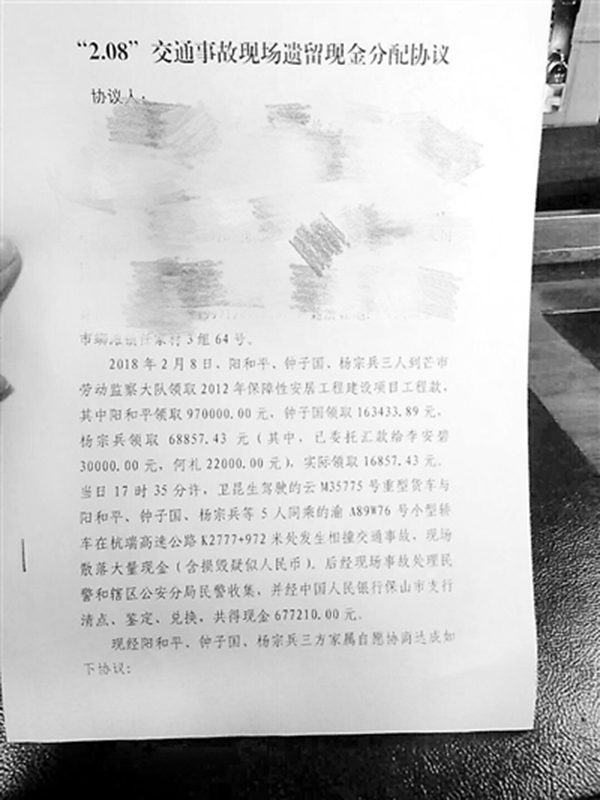 “2.08”交通事故现场遗留现金分配协议
协议人：
村3组64号。
2018年2月8日，阳和平、钟子国、杨宗兵三人到芒市
劳动监察大队领取2012年保障性安居工程建设项目工程款，
其中阳和平领取970000.00元，钟子国领取163433.89元，
杨宗兵领取68857.43元（其中，已委托汇款给李安碧
30000.00元，何札22000.00元），实际领取16857.43元。
当日17时35分许，卫昆生驾驶的云M35775号重型货车与
阳和平、钟子国、杨宗兵等5人同乘的渝A89W76号小型轿
车在杭瑞高速公路K2777+972米处发生相撞交通事故，现场
散落大量现金（含损毁疑似人民币），后经现场事故处理民
警和辖区公安分局民警收集，并经中国人民银行保山市支行
清点、鉴定、兑换，共得现金677210.00元。
现经阳和平、钟子国、杨宗兵三方家属自愿协商达成如
下协议：